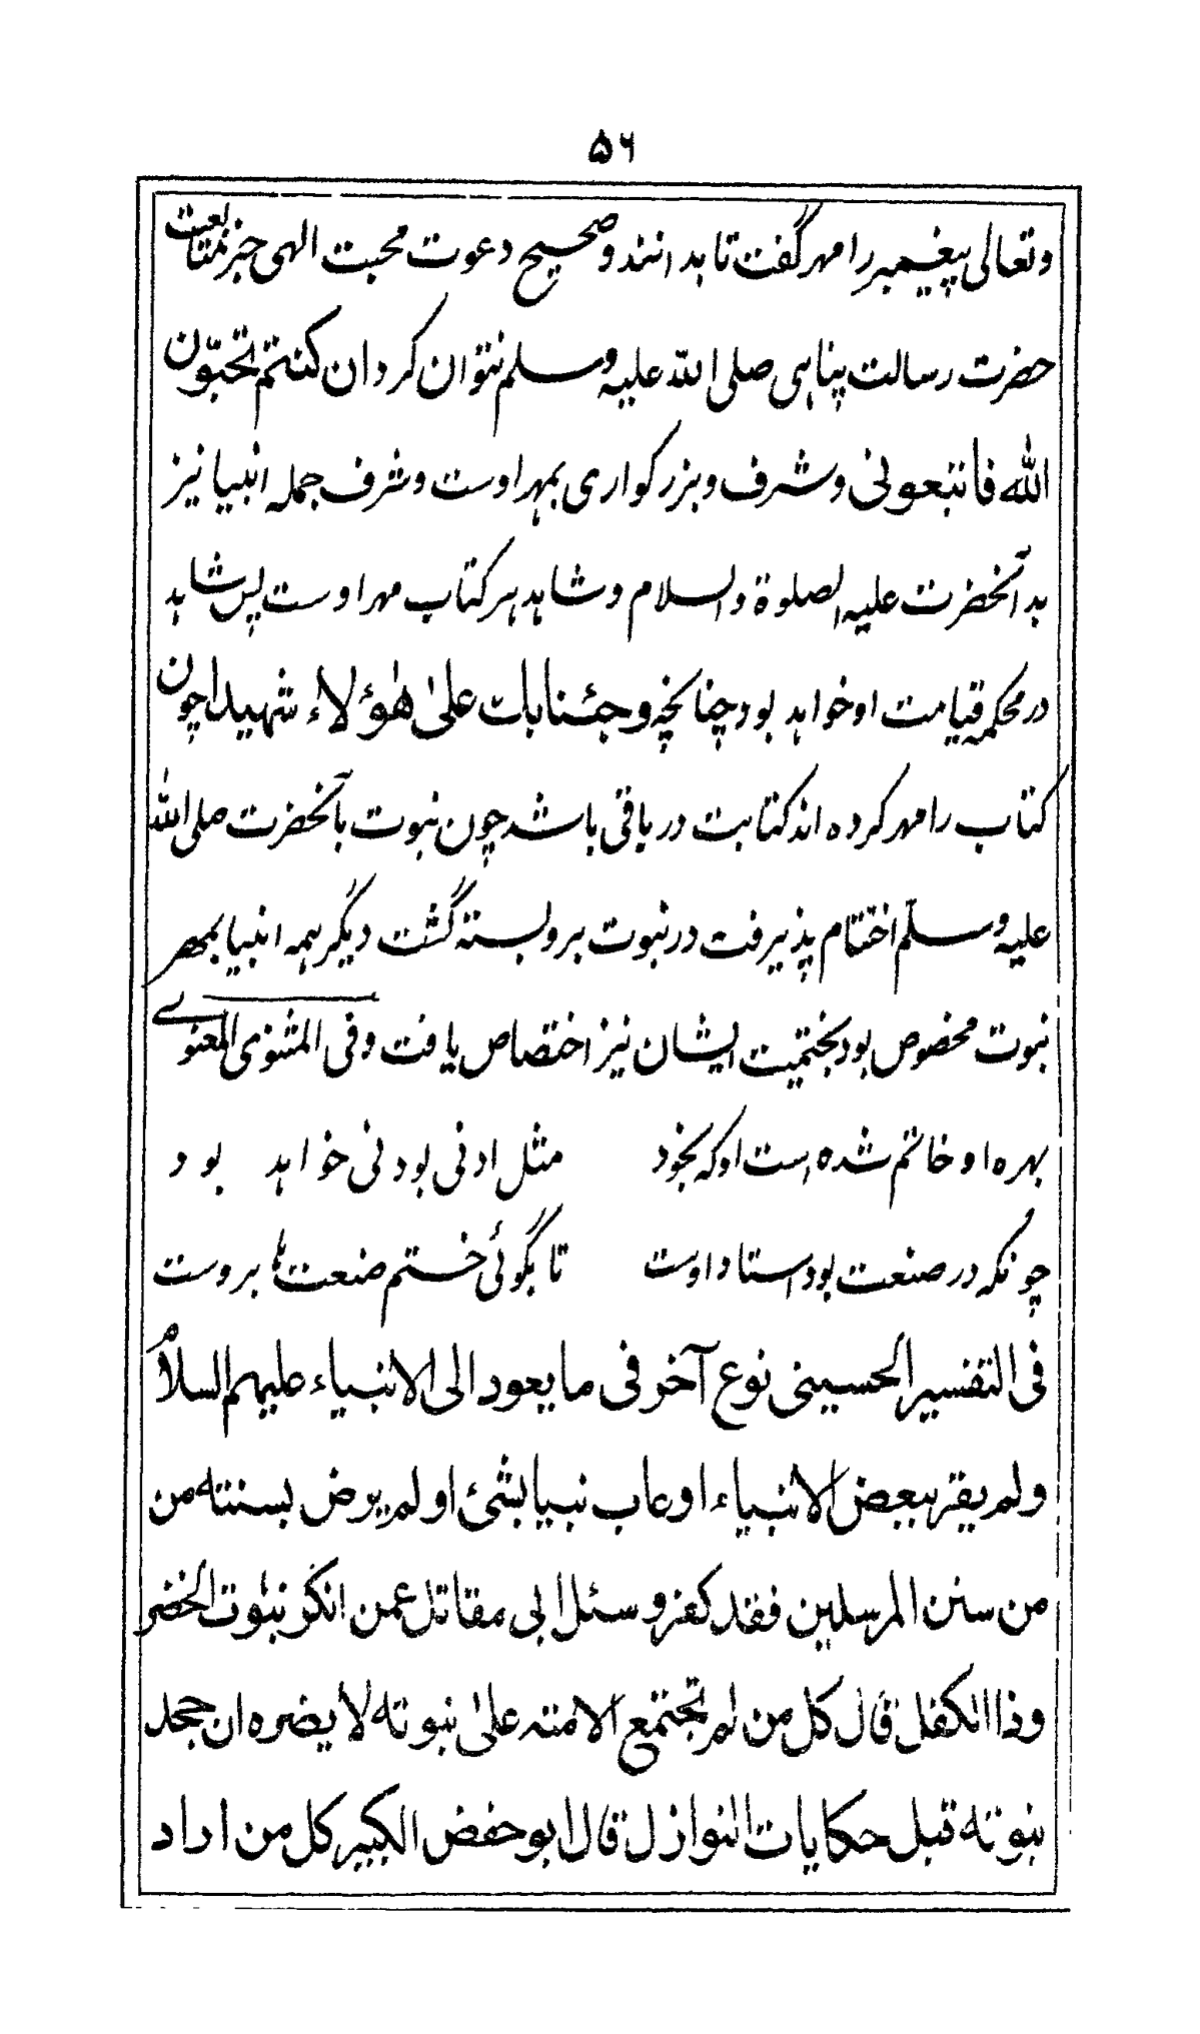 ۵۶
وتعالی پیغمبر را مهر گفت تا بدانند وصحیح دعوت محبت الهی جز بمتابعت
حضرت رسالت پناهی صلی الله علیه وسلم نتوان کرد ان کنتم تحبّون
الله فاتبعونی وشرف وبزرگواری بمهر اوست وشرف جمله انبیا نیز
بدآنحضرت علیه الصلوة والسلام وشاهد هر کتاب مهر اوست پس شاهد
در محکمه قیامت او خواهد بود چنانچه وجئنا بك علیٰ هٰؤلاء شهیدا چون
کتاب را مهر کرده اند کتابت در باقی باشد چون نبوت بآنحضرت صلی الله
علیه وسلم اختتام پذیرفت در نبوت بر وبسته گشت دیگر همه انبیا بمهر
نبوت مخصوص بود بختمیت ایشان نیز اختصاص یافت وفی المثنوی المعنوے
بهره او خاتم شده است او که بخود مثل او نی بود نی خواهد بود
چونکه در صنعت بود استاد اوست تا بگوئی ختم صنعت بروست
فی التفسیر الحسینی نوع آخر فی ما یعود الی الانبیاء علیهم السلام
ولم یقر ببعض الانبیاء او عاب نبیا بشئ او لم یرض بسنته من
من سنن المرسلین فقد کفر وسئل ابی مقاتل عمن انکر نبوت الخضر
وذا الکفل قال کل من لم تجتمع الامته علیٰ نبوته لا یضره ان جحد
نبوته قبل حکایات النوازل قال ابو حفض الکبیر کل من اراد